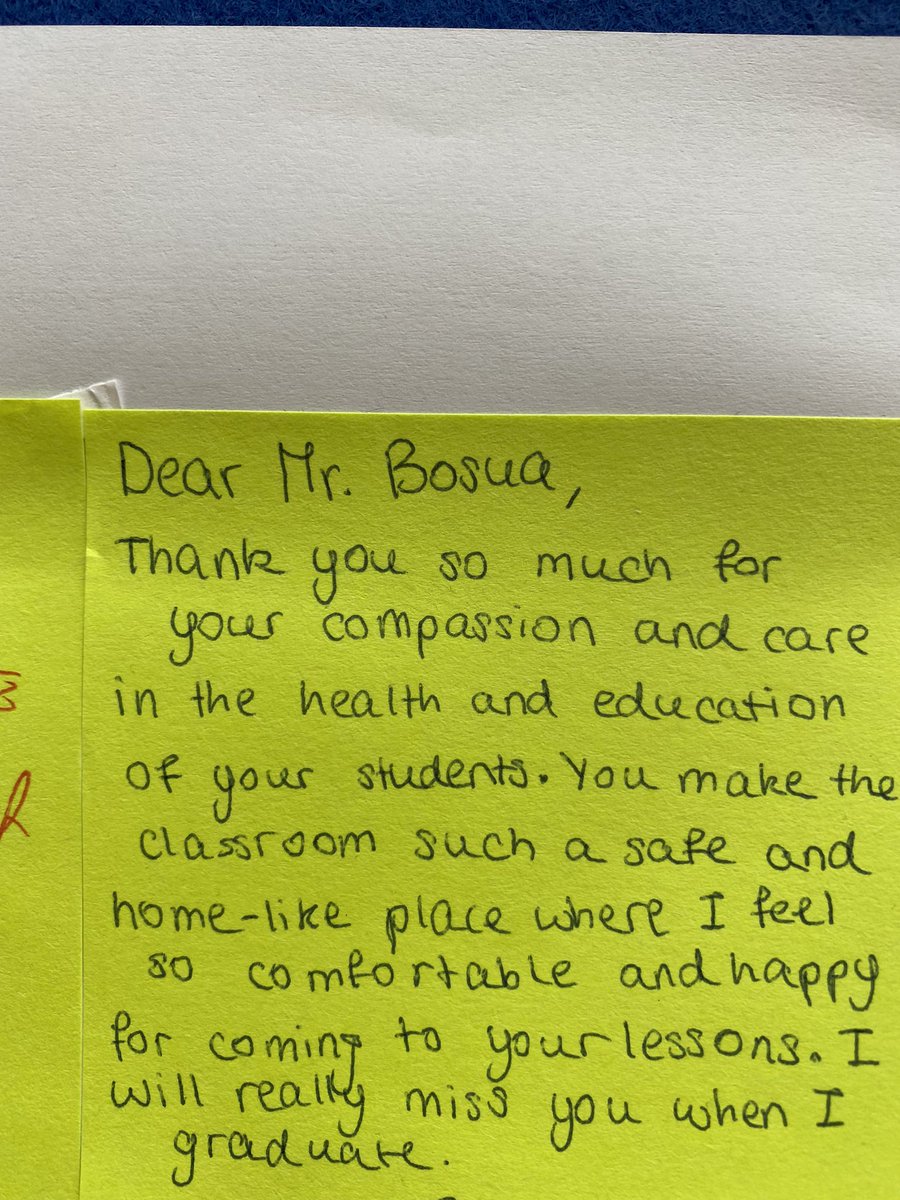 Dear Mr. Bosua,
Thank you so much for
your compassion and care
in the health and education
of your students. You make the
classroom such a safe and
home-like place where I feel
so comfortable and happy
for coming to your lessons. I
will really miss you when I
graduate.